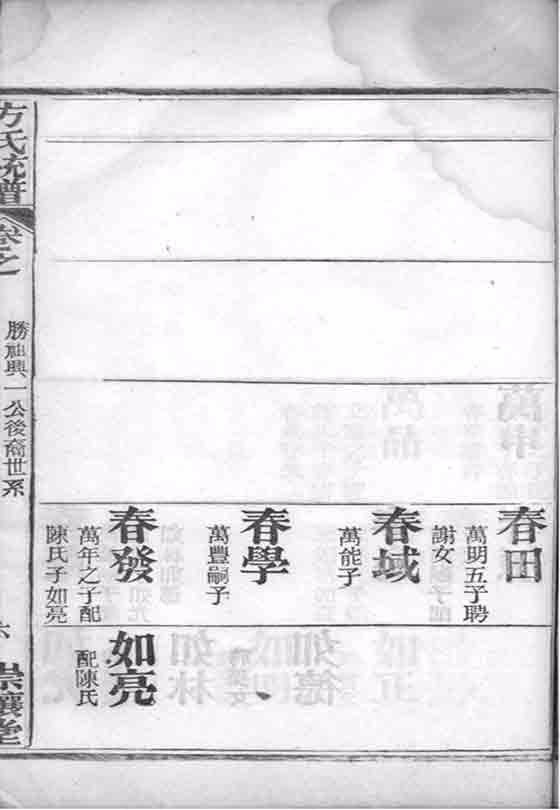 春田
萬明五子聘
謝女
春域
萬能子
春學
萬豐嗣子
春發
萬年之子配
陳氏子如亮
如亮
配陳氏
方氏統譜
卷之
勝祖興一公後裔世系
六
崇讓堂